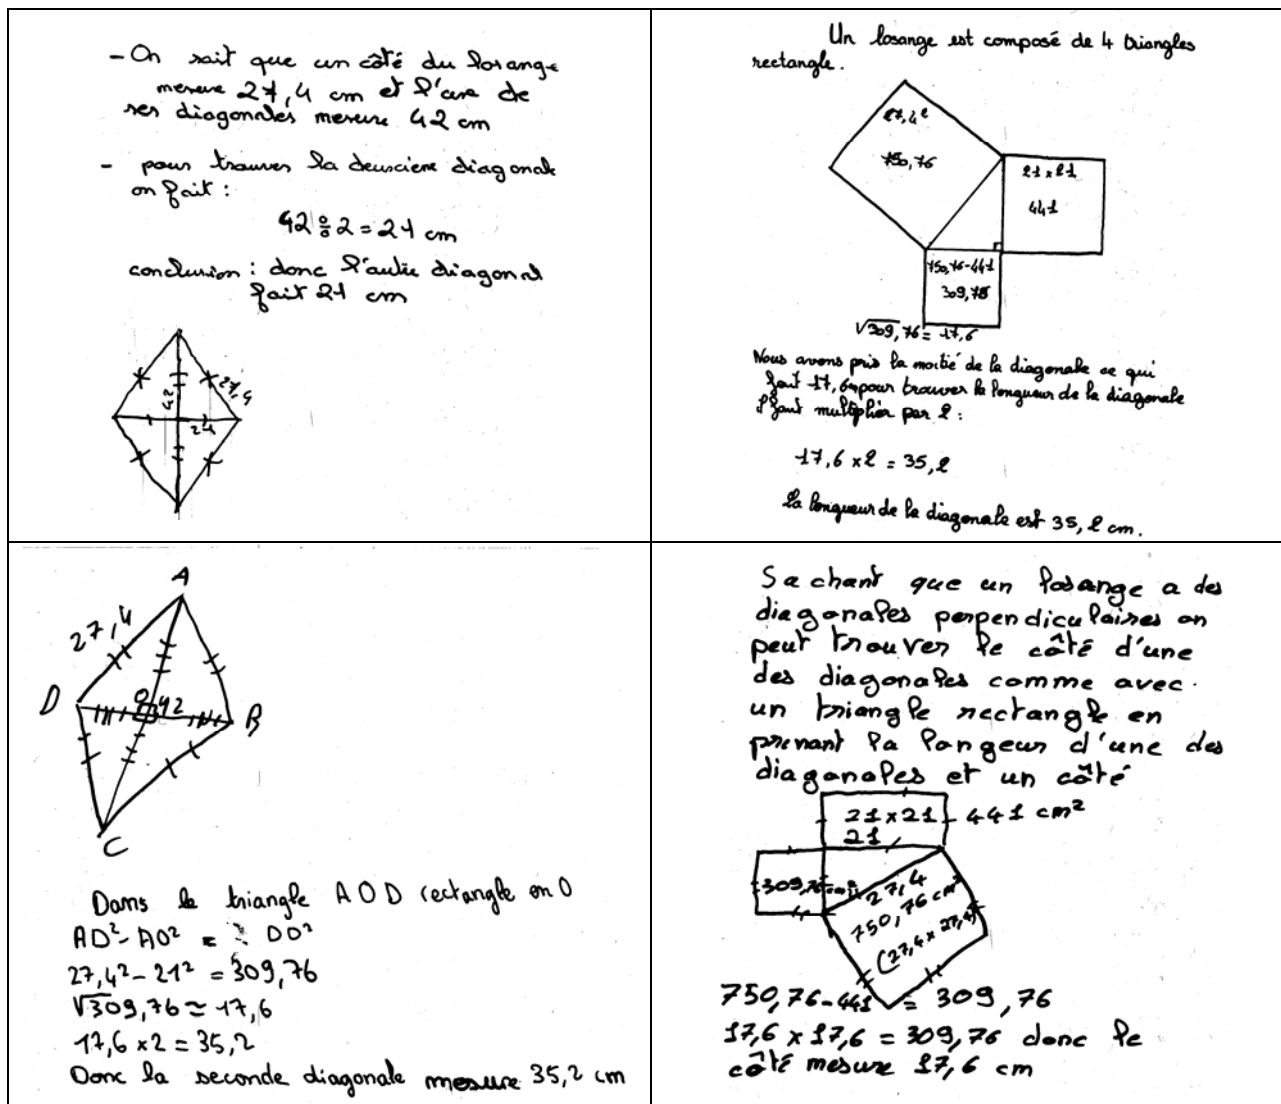 - On sait que un côté du losange
mesure 27,4 cm et l'une de
ses diagonales mesure 42 cm
- pour trouver la deuxième diagonale
on fait :
42 ÷ 2 = 21 cm
conclusion : donc l'autre diagonal
fait 21 cm
27,4
42
21
Un losange est composé de 4 triangles
rectangle.
27,4²
750,76
21 x 21
441
750,76-441
309,76
√309,76 = 17,6
Nous avons pris la moitié de la diagonale ce qui
fait 17,6 pour trouver la longueur de la diagonale
il faut multiplier par 2 :
17,6 x 2 = 35,2
La longueur de la diagonale est 35,2 cm.
A
27,4
D
O
42
B
C
Dans le triangle AOD rectangle en O
AD² - AO² = DO²
27,4² - 21² = 309,76
√309,76 ≈ 17,6
17,6 x 2 = 35,2
Donc la seconde diagonale mesure 35,2 cm
Sachant que un losange a des
diagonales perpendiculaires on
peut trouver le côté d'une
des diagonales comme avec
un triangle rectangle en
prenant la longeur d'une des
diagonales et un côté
21 x 21
441 cm²
21
309,76 cm²
27,4
750,76 cm²
(27,4 x 27,4)
750,76 - 441 = 309,76
17,6 x 17,6 = 309,76 donc le
côté mesure 17,6 cm